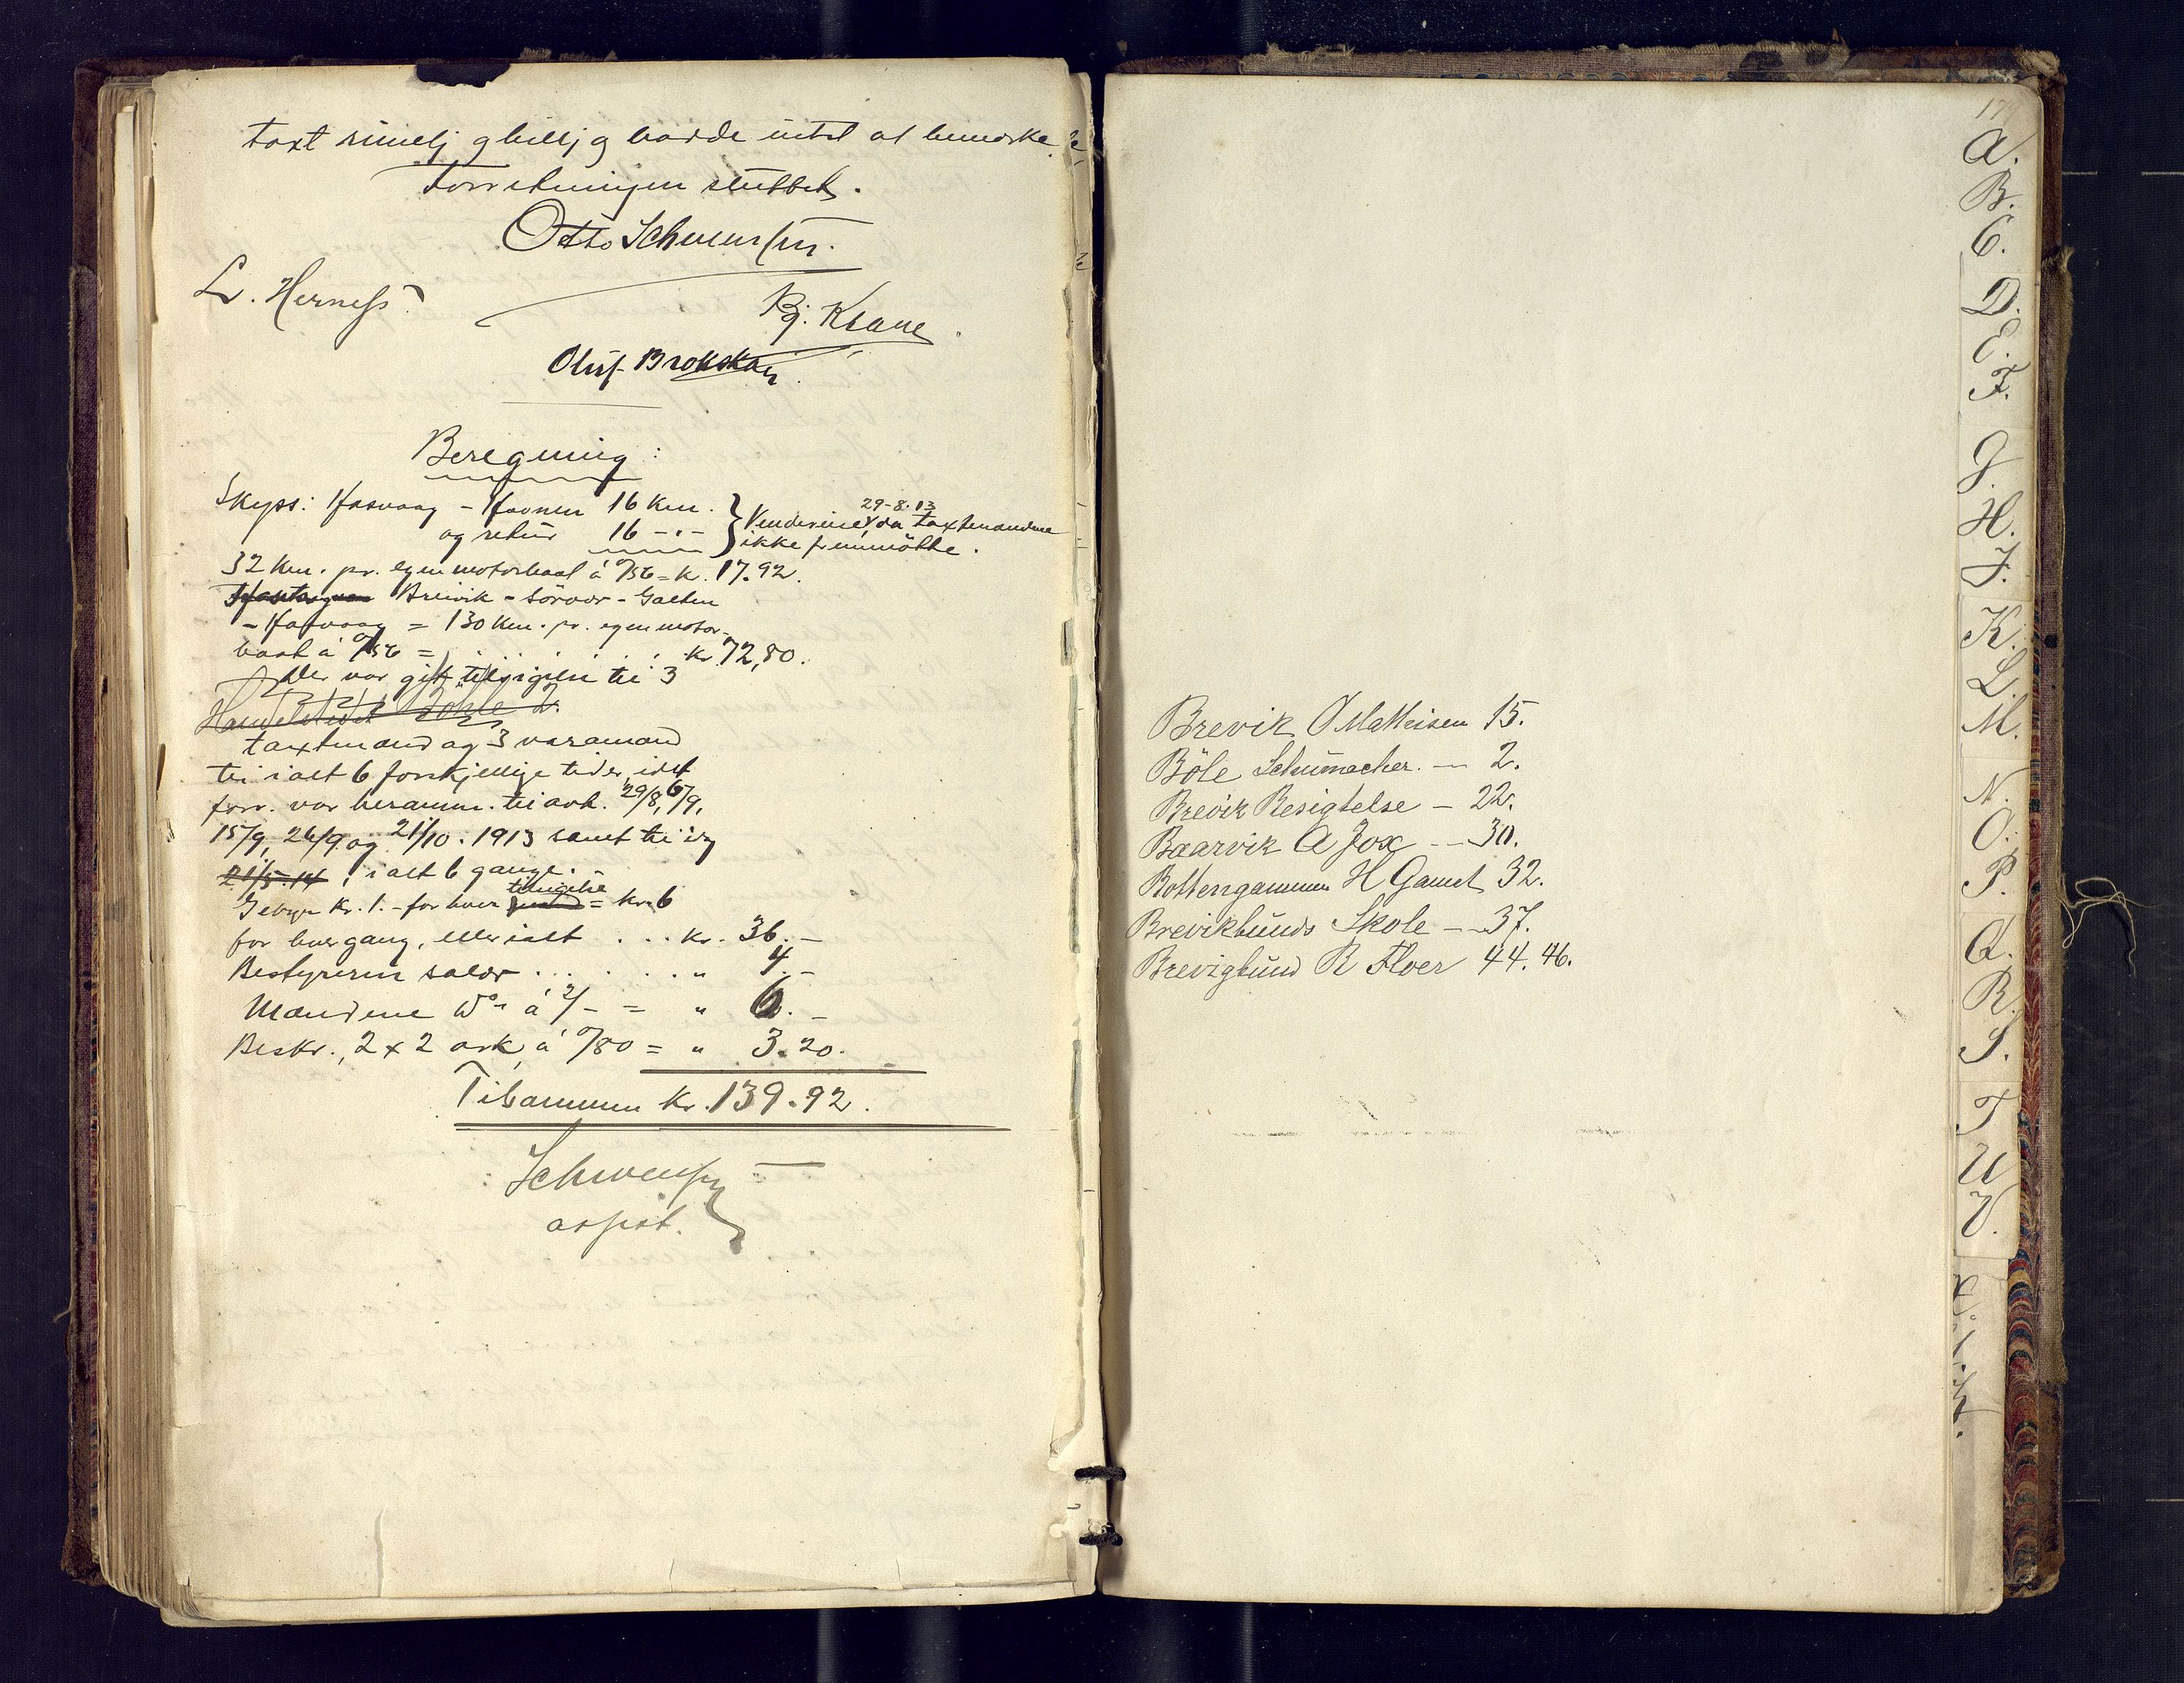 taxt rimelig og billig og havde intet at bemerke.
Forretningen sluttet.
Otto Schwensen.
L. Herness
Bj. Krane
Oluf Brokskar
Beregning:
Skyss: Hasvaag - Havnen 16 km.
og retur 16 - " -
Vendereise 29-8-13 da taxtmændene
ikke fremmötte.
32 km. pr. egen motorbaat á 0/56 = k. 17.92.
Breivik - Sörvær - Galten
- Hasvaag = 130 km. pr. egen motor-
baat á 0/56 = . . . . . kr. 72,80.
Der var gitt tilsigelse til 3
taxtmænd og 3 varamænd
til ialt 6 forskjellige tider, idet
forr. var beramm. til avh. 29/8, 6/9,
15/9, 26/9 og 21/10. 1913 samt til idag
21/5.14, ialt 6 gange.
Gebyr Kr. 1.- for hver tilsigelse = kr. 6
for hver gang, eller ialt . . . kr. 36.-
Bestyreren salær . . . . . . " 4.-
Mændene do á 2/- = " 6.-
Beskr., 2 x 2 ark á 0/80 = " 3.20.
Tilsammen kr. 139.92.
Schwensen
assist.
17
A.
B.
C.
D.
E.
F.
G.
H.
J.
K.
L.
M.
N.
O.
P.
Q.
R.
S.
T.
U
V.
Brevik O Mathisen 15.
Böle Schumacher. — 2.
Brevik Besigtelse — 22.
Baarvik A Fox — 30.
Bottengammen H Gamst 32.
Brevikbunds Skole — 37.
Brevigbund R Floer 44. 46.